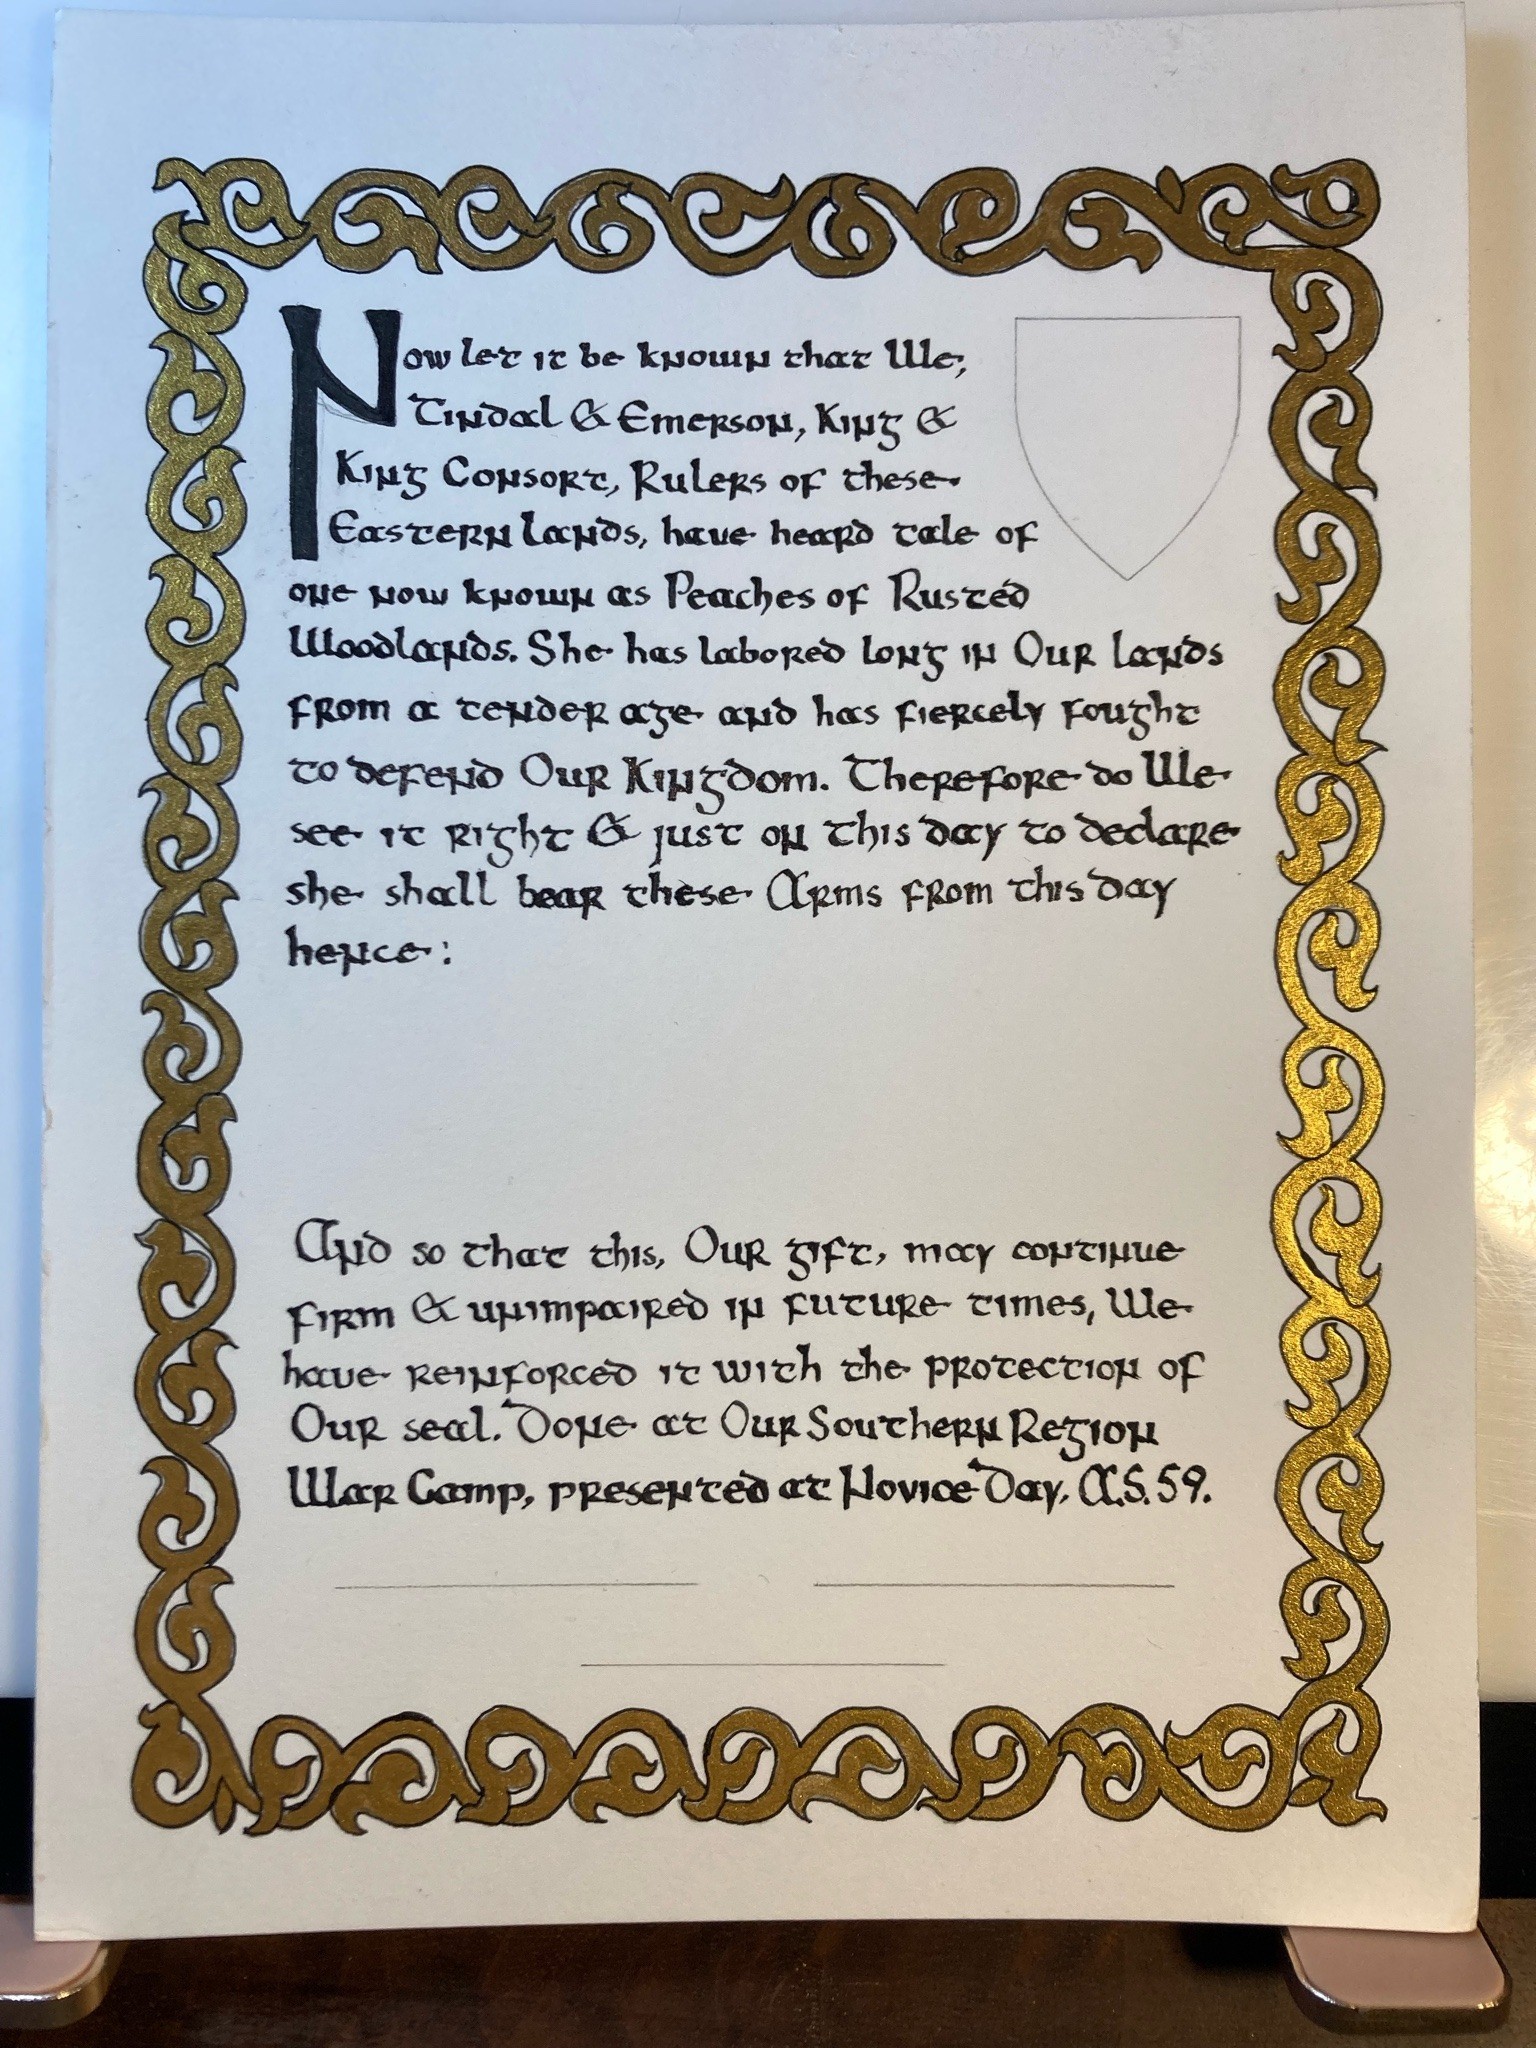 Now let it be known that We,
Tindal & Emerson, King &
King Consort, Rulers of these
Eastern Lands, have heard tale of
one now known as Peaches of Rusted
Woodlands. She has labored long in Our lands
from a tender age and has fiercely fought
to defend Our Kingdom. Therefore do We
see it right & just on this day to declare
she shall bear these Arms from this day
hence:
And so that this, Our gift, may continue
firm & unimpaired in future times, We
have reinforced it with the protection of
Our seal. Done at Our Southern Region
War Camp, presented at Novice Day, A.S. 59.